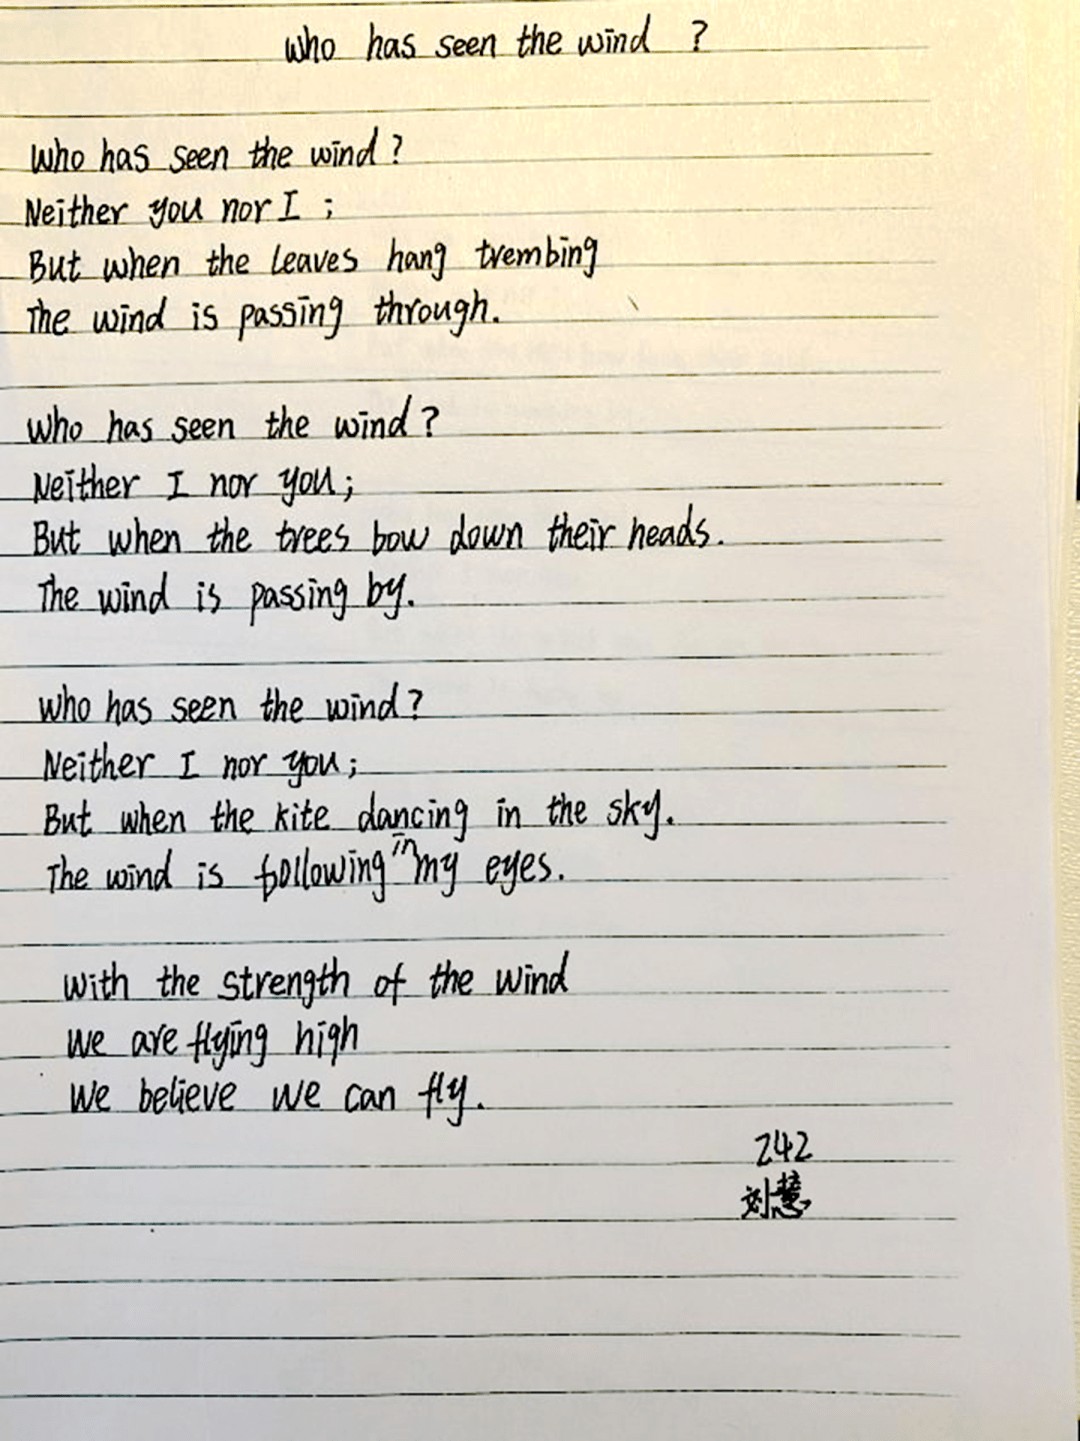 Who has seen the wind ?
Who has seen the wind ?
Neither you nor I ;
But when the leaves hang trembing
The wind is passing through.
Who has seen the wind ?
Neither I nor you ;
But when the trees bow down their heads.
The wind is passing by.
Who has seen the wind ?
Neither I nor you ;
But when the kite dancing in the sky.
The wind is following in my eyes.
With the strength of the wind
We are flying high
We believe we can fly.
242
刘慧